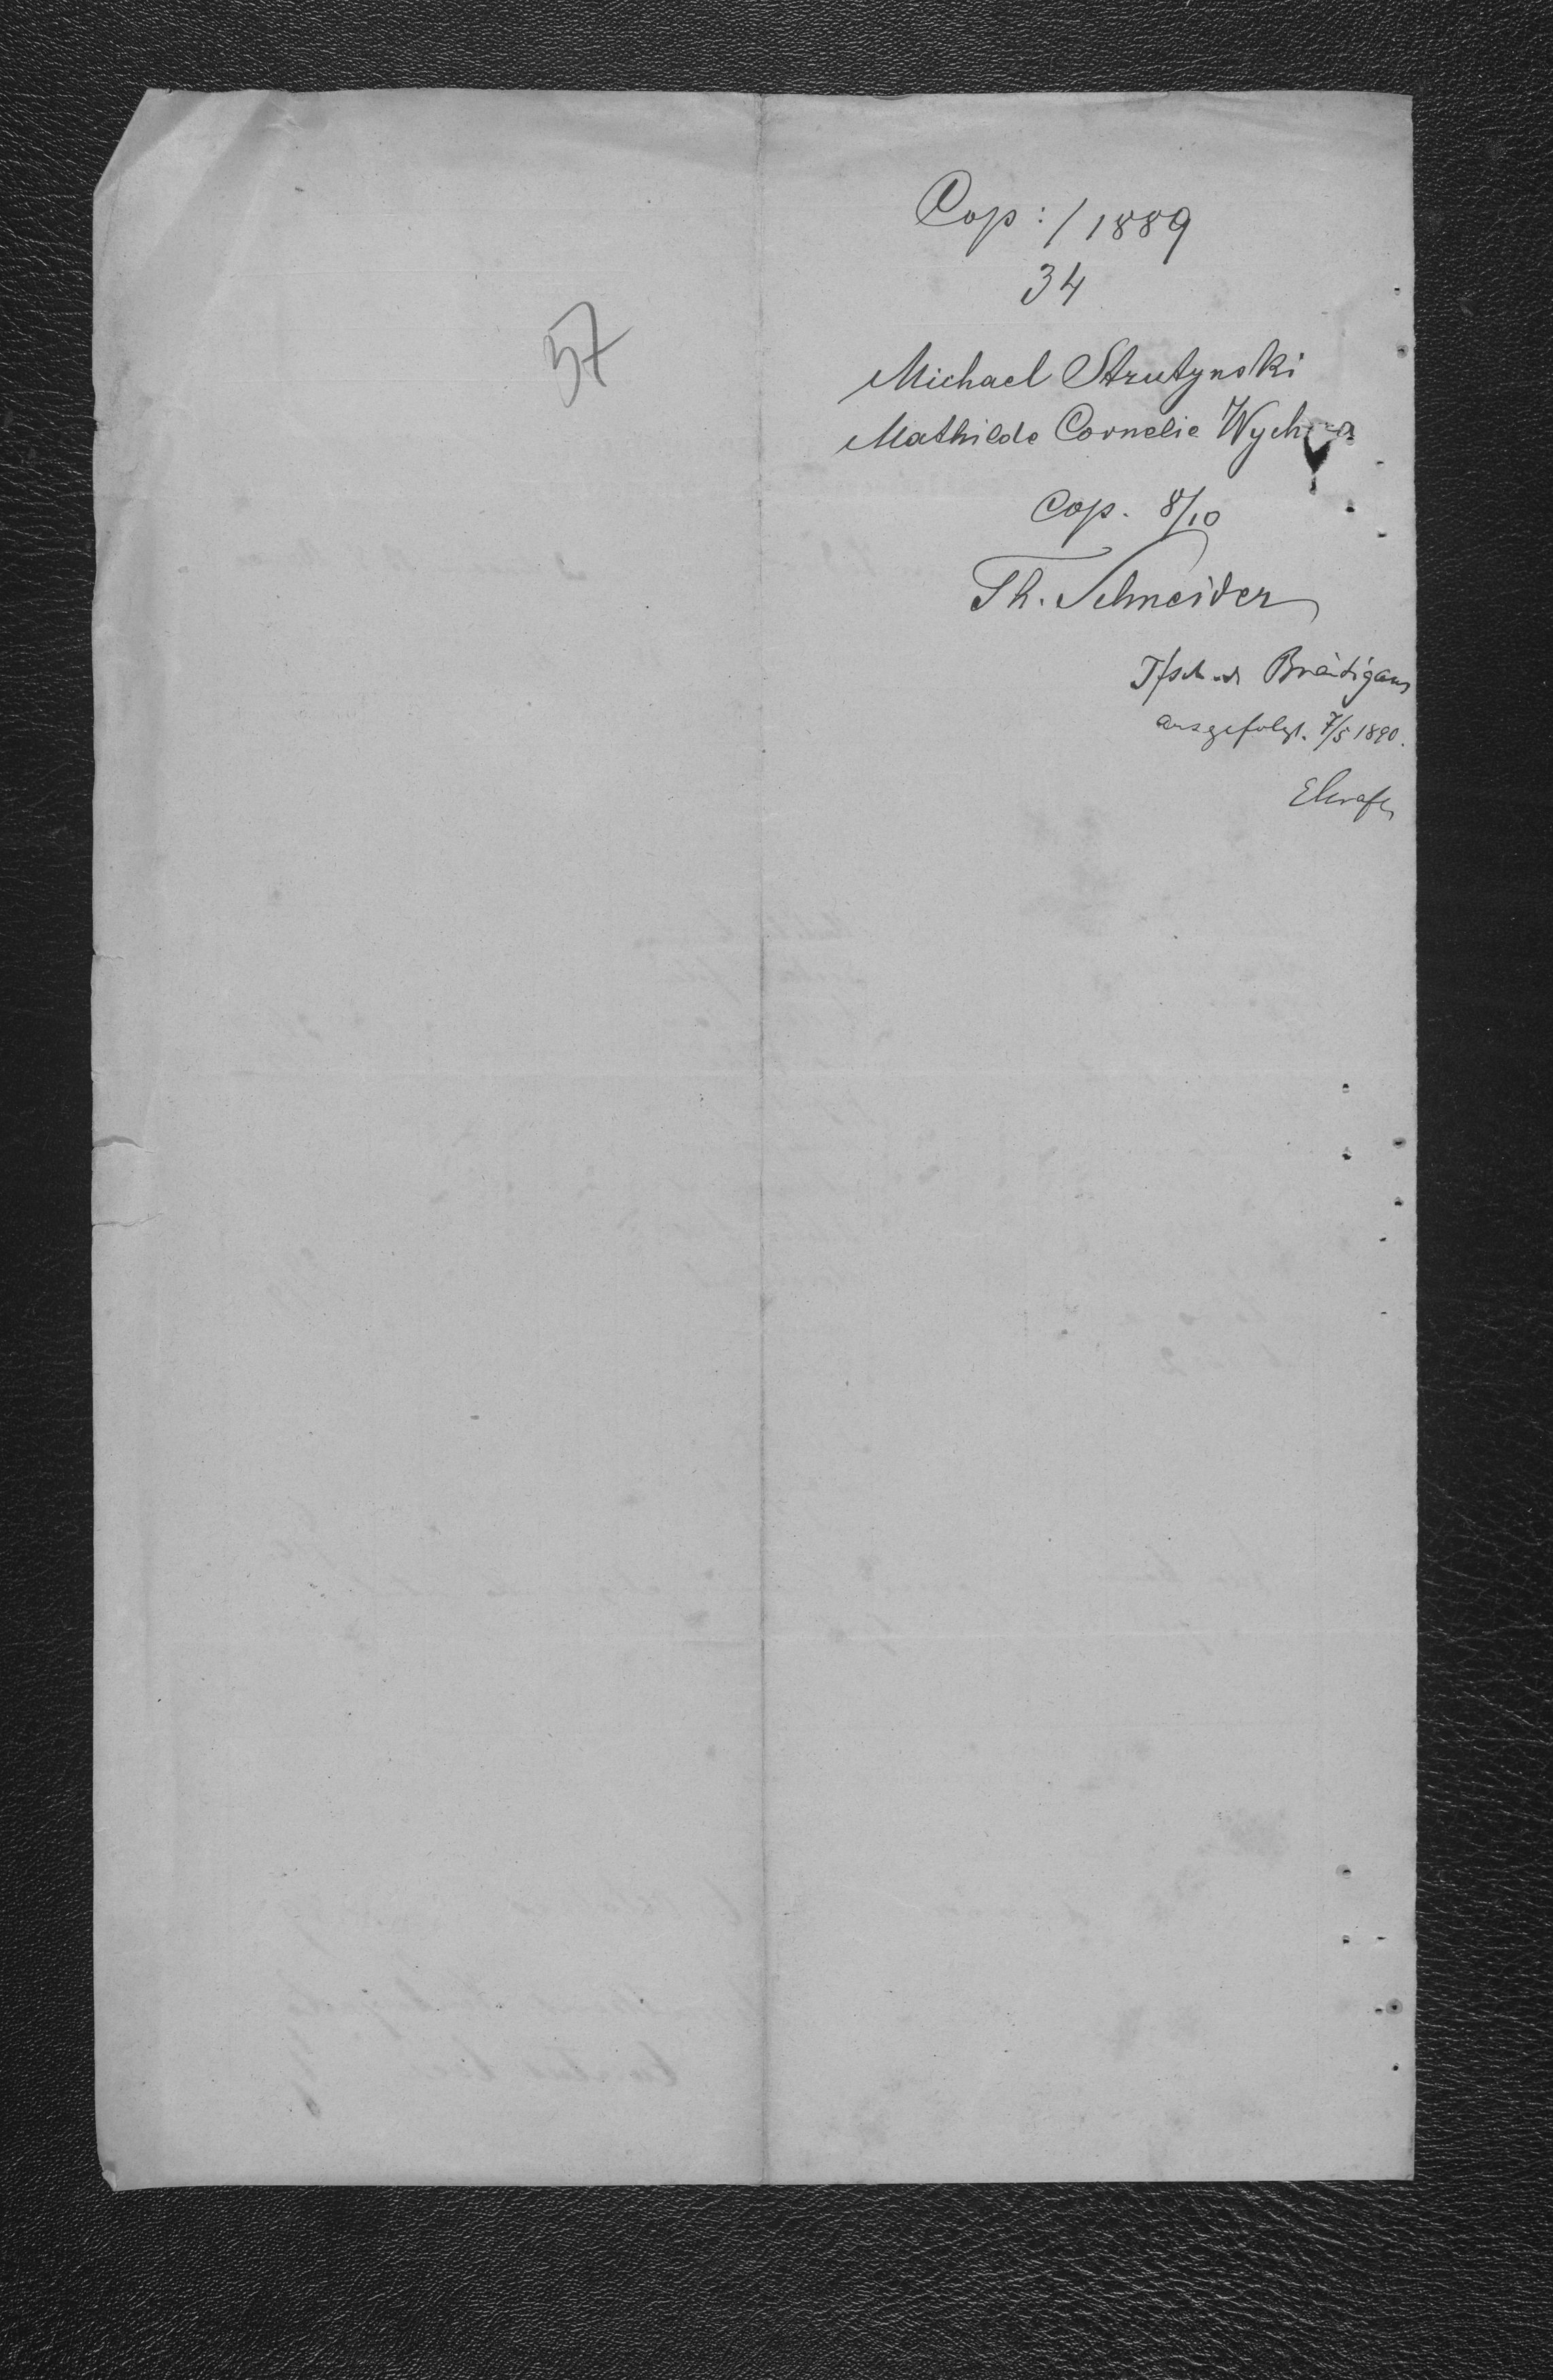 Cop: / 1889
34
57
Michael Strutynski
Mathilde Cornelie
Cop. 8/10
Th. Schneider
Tfsch. d. Bräutigam
ausgefolgt. 7/5 1890.